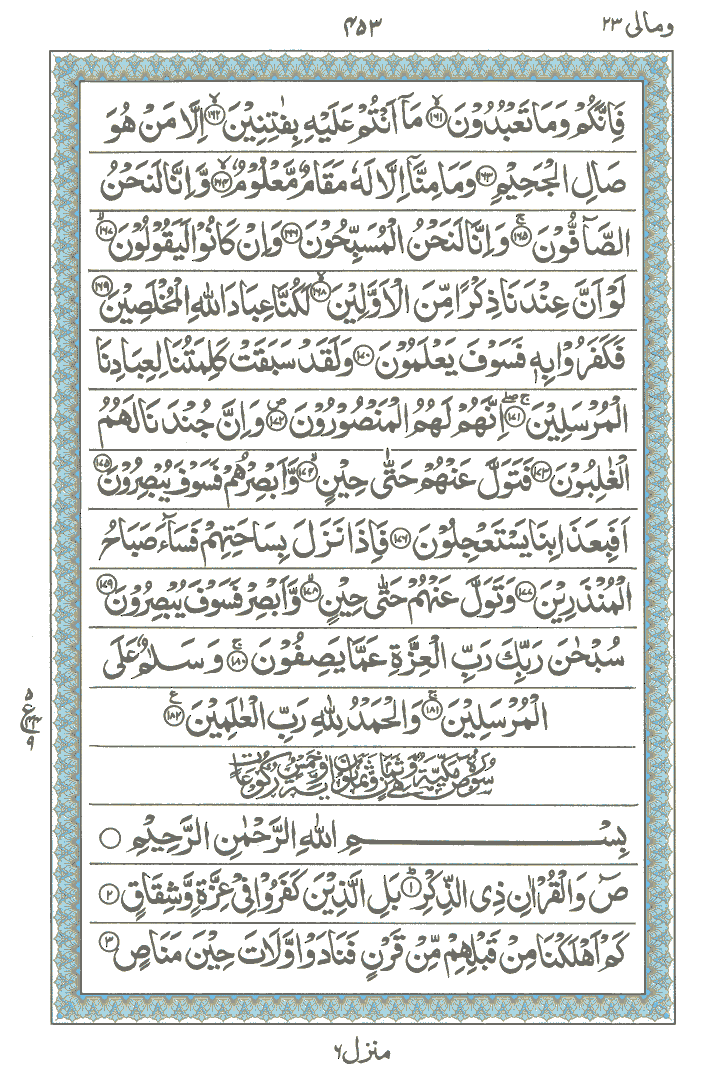 ومالی ٢٣
٤٥٣
فَاِنَّكُمْ وَمَا تَعْبُدُوْنَ ۙ﴿١٦١﴾ مَآ اَنْتُمْ عَلَيْهِ بِفٰتِنِيْنَ ۙ﴿١٦٢﴾ اِلَّا مَنْ هُوَ
صَالِ الْجَحِيْمِ ﴿١٦٣﴾ وَمَا مِنَّآ اِلَّا لَهٗ مَقَامٌ مَّعْلُوْمٌ ۙ﴿١٦٤﴾ وَّاِنَّا لَنَحْنُ
الصَّآفُّوْنَ ۚ﴿١٦٥﴾ وَاِنَّا لَنَحْنُ الْمُسَبِّحُوْنَ ﴿١٦٦﴾ وَاِنْ كَانُوْا لَيَقُوْلُوْنَ ۙ﴿١٦٧﴾
لَوْ اَنَّ عِنْدَنَا ذِكْرًا مِّنَ الْاَوَّلِيْنَ ۙ﴿١٦٨﴾ لَكُنَّا عِبَادَ اللّٰهِ الْمُخْلَصِيْنَ ﴿١٦٩﴾
فَكَفَرُوْا بِهٖ فَسَوْفَ يَعْلَمُوْنَ ﴿١٧٠﴾ وَلَقَدْ سَبَقَتْ كَلِمَتُنَا لِعِبَادِنَا
الْمُرْسَلِيْنَ ۚۖ﴿١٧١﴾ اِنَّهُمْ لَهُمُ الْمَنْصُوْرُوْنَ ۪﴿١٧٢﴾ وَاِنَّ جُنْدَنَا لَهُمُ
الْغٰلِبُوْنَ ﴿١٧٣﴾ فَتَوَلَّ عَنْهُمْ حَتّٰى حِيْنٍ ۙ﴿١٧٤﴾ وَّاَبْصِرْهُمْ فَسَوْفَ يُبْصِرُوْنَ ﴿١٧٥﴾
اَفَبِعَذَابِنَا يَسْتَعْجِلُوْنَ ﴿١٧٦﴾ فَاِذَا نَزَلَ بِسَاحَتِهِمْ فَسَآءَ صَبَاحُ
الْمُنْذَرِيْنَ ﴿١٧٧﴾ وَتَوَلَّ عَنْهُمْ حَتّٰى حِيْنٍ ۙ﴿١٧٨﴾ وَّاَبْصِرْ فَسَوْفَ يُبْصِرُوْنَ ﴿١٧٩﴾
سُبْحٰنَ رَبِّكَ رَبِّ الْعِزَّةِ عَمَّا يَصِفُوْنَ ۚ﴿١٨٠﴾ وَسَلٰمٌ عَلَى
الْمُرْسَلِيْنَ ۚ﴿١٨١﴾ وَالْحَمْدُ لِلّٰهِ رَبِّ الْعٰلَمِيْنَ ﴿١٨٢﴾ ع
٥
ع
٤٤
٩
سُوْرَةُ صٓ مَكِّيَّةٌ وَّهِيَ ثَمَانٌ وَّثَمَانُوْنَ اٰيَةً وَّخَمْسُ رُكُوْعَاتٍ
بِسْمِ اللّٰهِ الرَّحْمٰنِ الرَّحِيْمِ ○
صٓ وَالْقُرْاٰنِ ذِى الذِّكْرِ ؕ﴿١﴾ بَلِ الَّذِيْنَ كَفَرُوْا فِىْ عِزَّةٍ وَّشِقَاقٍ ﴿٢﴾
كَمْ اَهْلَكْنَا مِنْ قَبْلِهِمْ مِّنْ قَرْنٍ فَنَادَوْا وَّلَاتَ حِيْنَ مَنَاصٍ ﴿٣﴾
منزل ٦